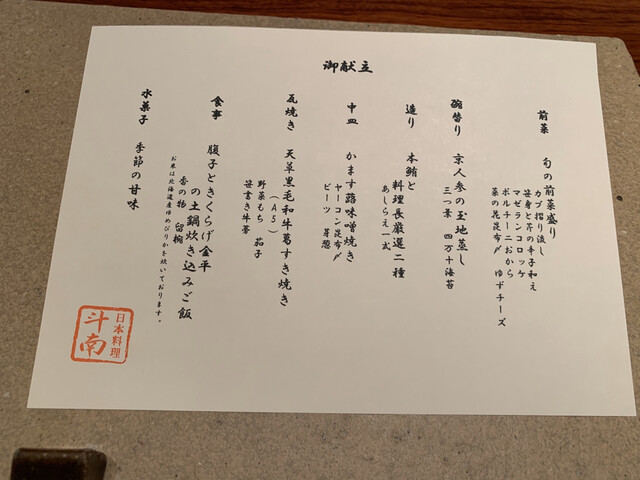 御献立
前菜　旬の前菜盛り
カブ摺り流し
笹身と芹の辛子和え
マゼランコロッケ
ポルチーニおから　ゆずチーズ
菜の花昆布〆
碗替り　京人参の玉地蒸し
三つ葉　四万十海苔
造り　本鮪と
料理長厳選二種
あしらえ一式
中皿　かます蕗味噌焼き
ヤーコン昆布〆
ビーツ　芽葱
瓦焼き　天草黒毛和牛葛すき焼き
（A5）
野菜もち　茄子
笹書き牛蒡
食事　腹子ときくらげ金平
の土鍋炊き込みご飯
香の物　留椀
お米は北海道産ゆめぴりかを炊いております。
水菓子　季節の甘味
日本料理
斗南